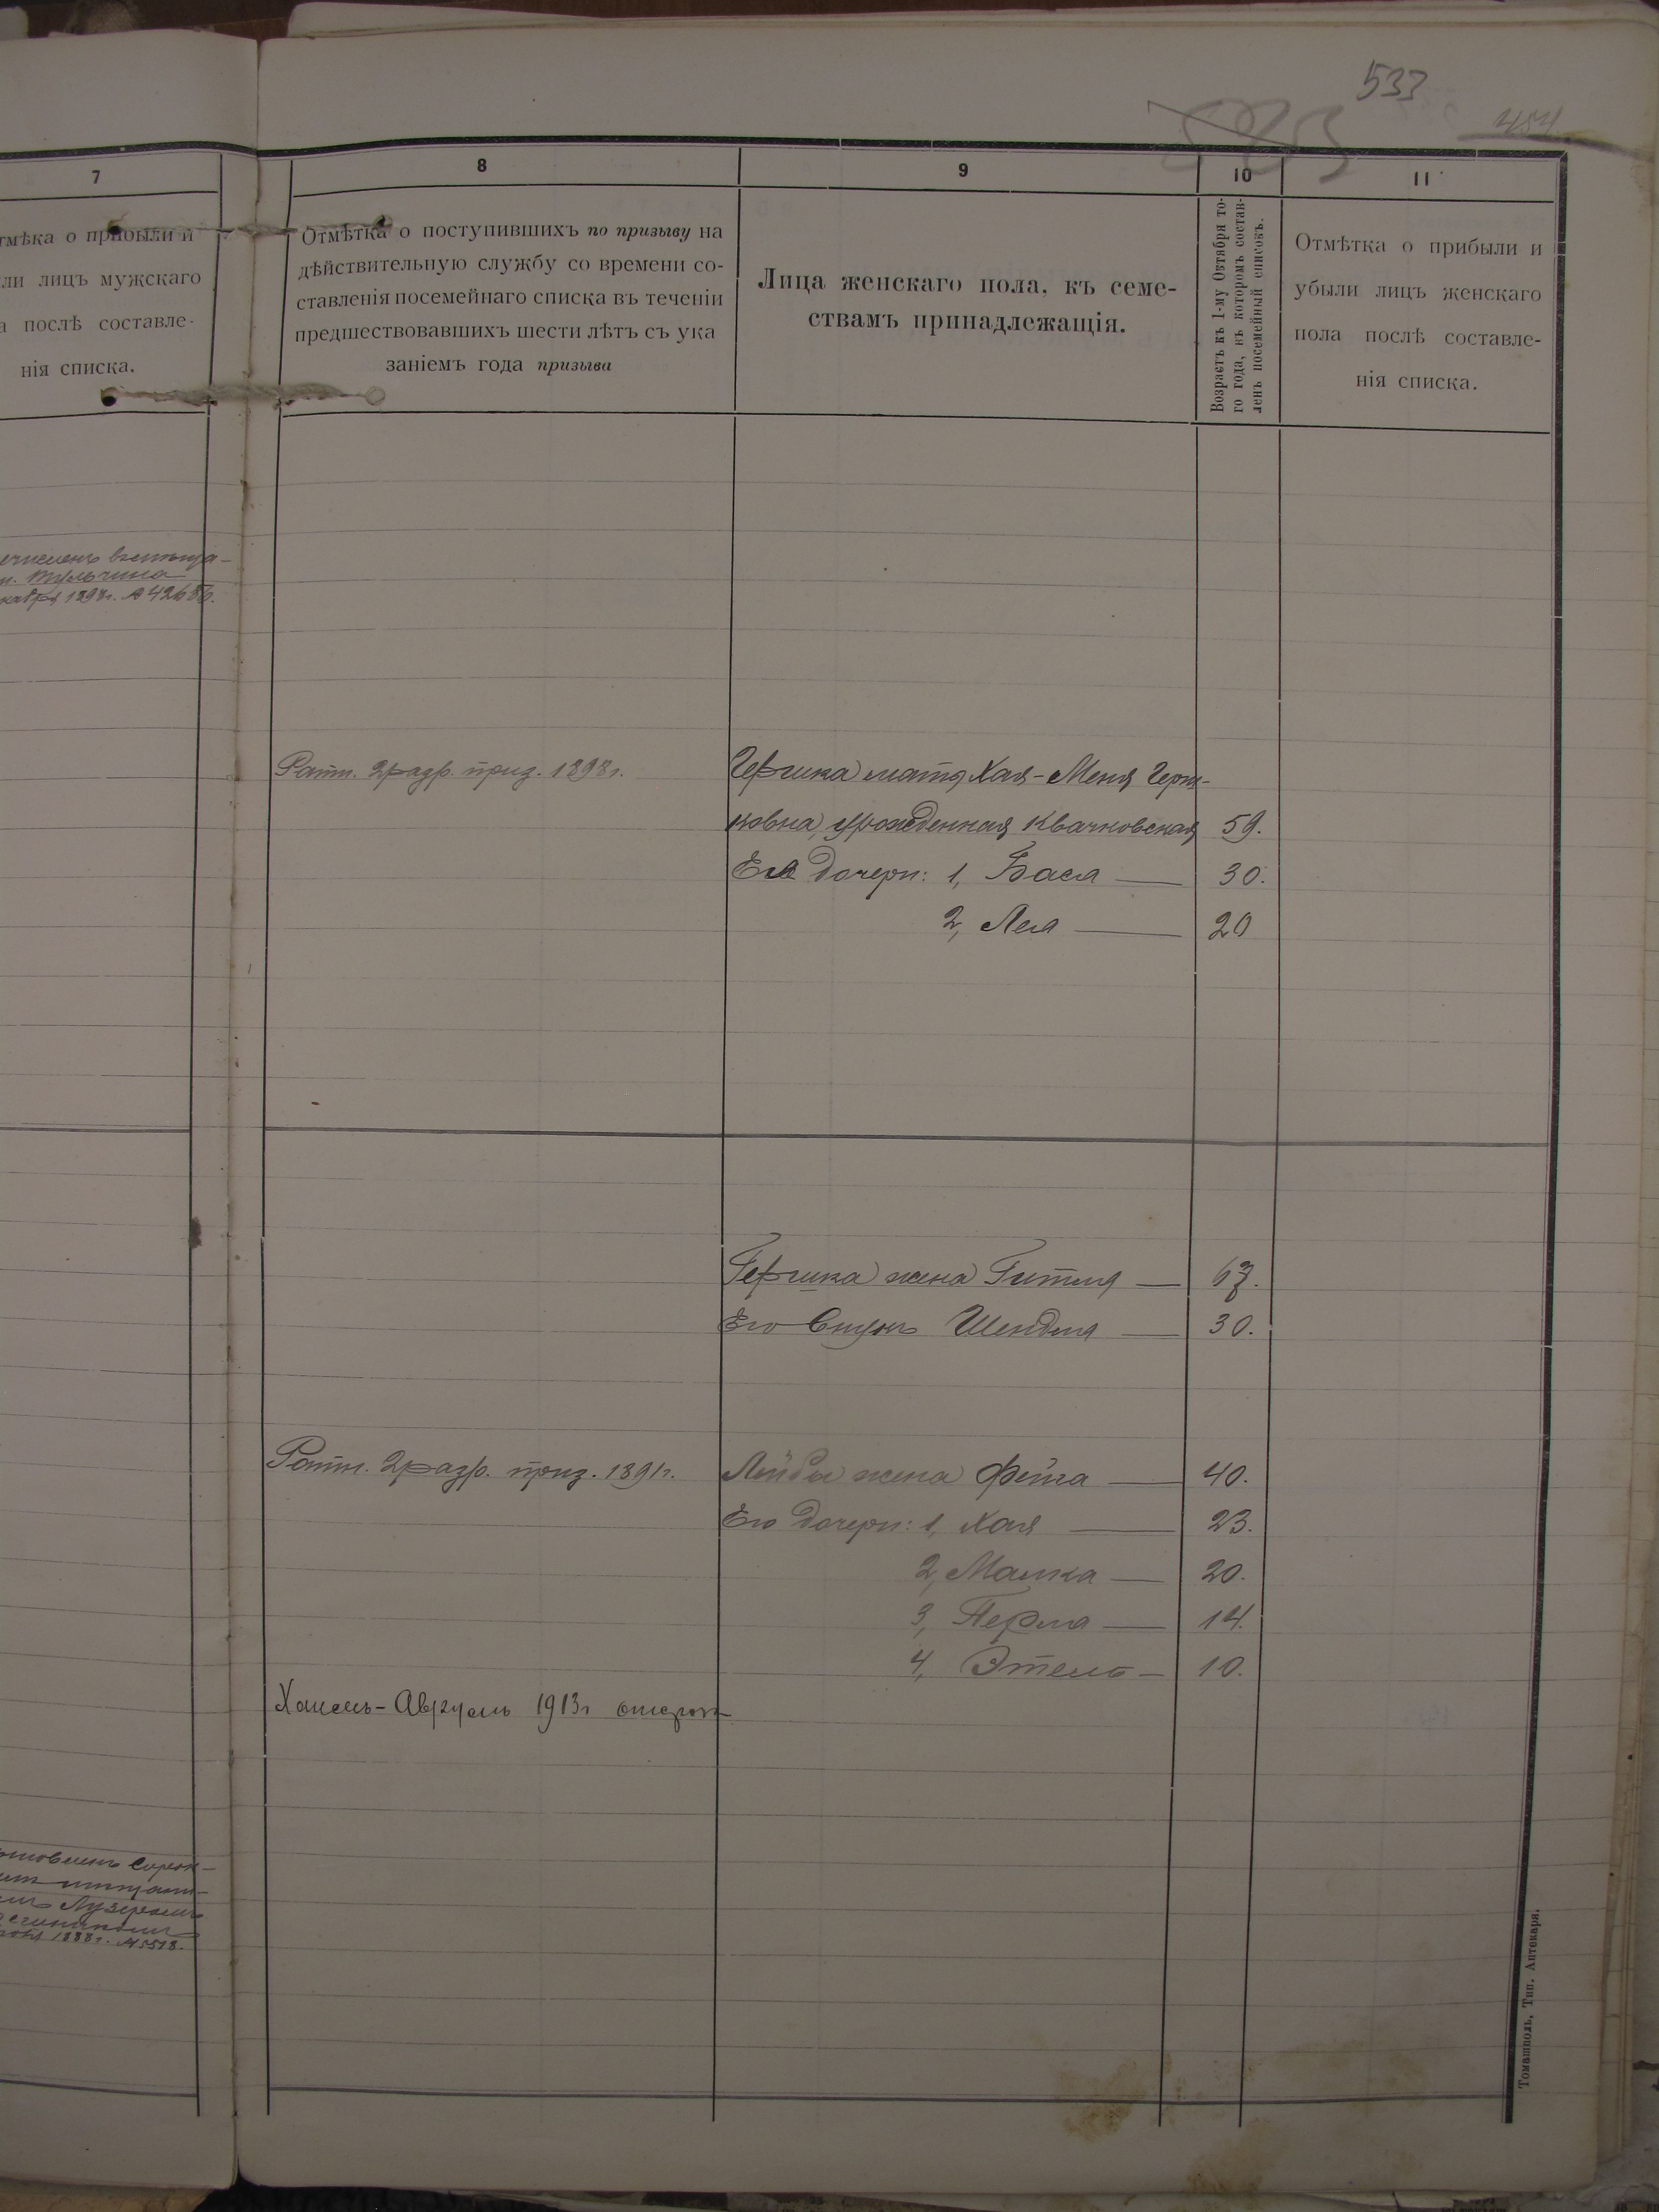 533
454
7
8
9
10
11
тмѣка о прибыли и
ли лицъ мужскаго
а послѣ составле-
нія списка.
Отмѣтка о поступившихъ по призыву на
дѣйствительную службу со времени со-
ставленія посемейнаго списка въ теченіи
предшествовавшихъ шести лѣтъ съ ука
заніемъ года призыва
Лица женскаго пола, къ семе-
ствамъ принадлежащія.
Возрастъ къ 1-му Октября то-
го года, въ которомъ состав-
ленъ посемейный списокъ.
Отмѣтка о прибыли и
убыли лицъ женскаго
пола послѣ составле-
нія списка.
Тульчина
1898г. № 42686.
Ратн. 2 разр. приз. 1898 г.
Гершка мать Хая-Меня Герш-
ковна, урожденная Квачковская 59.
Его дочери: 1, Бася — 30.
2, Лея — 20
Гершка жена Гитля — 67.
Его внукъ Шендля — 30.
Ратн. 2 разр. приз. 1891 г.
Лейбы жена Фейга — 40.
Его дочери: 1, Хая — 23.
2, Малка — 20.
3, Перля — 14.
4, Этель — 10.
1913 г отсроч
1888 г. № 5518.
Томашполь, Тип. Аптекаря.